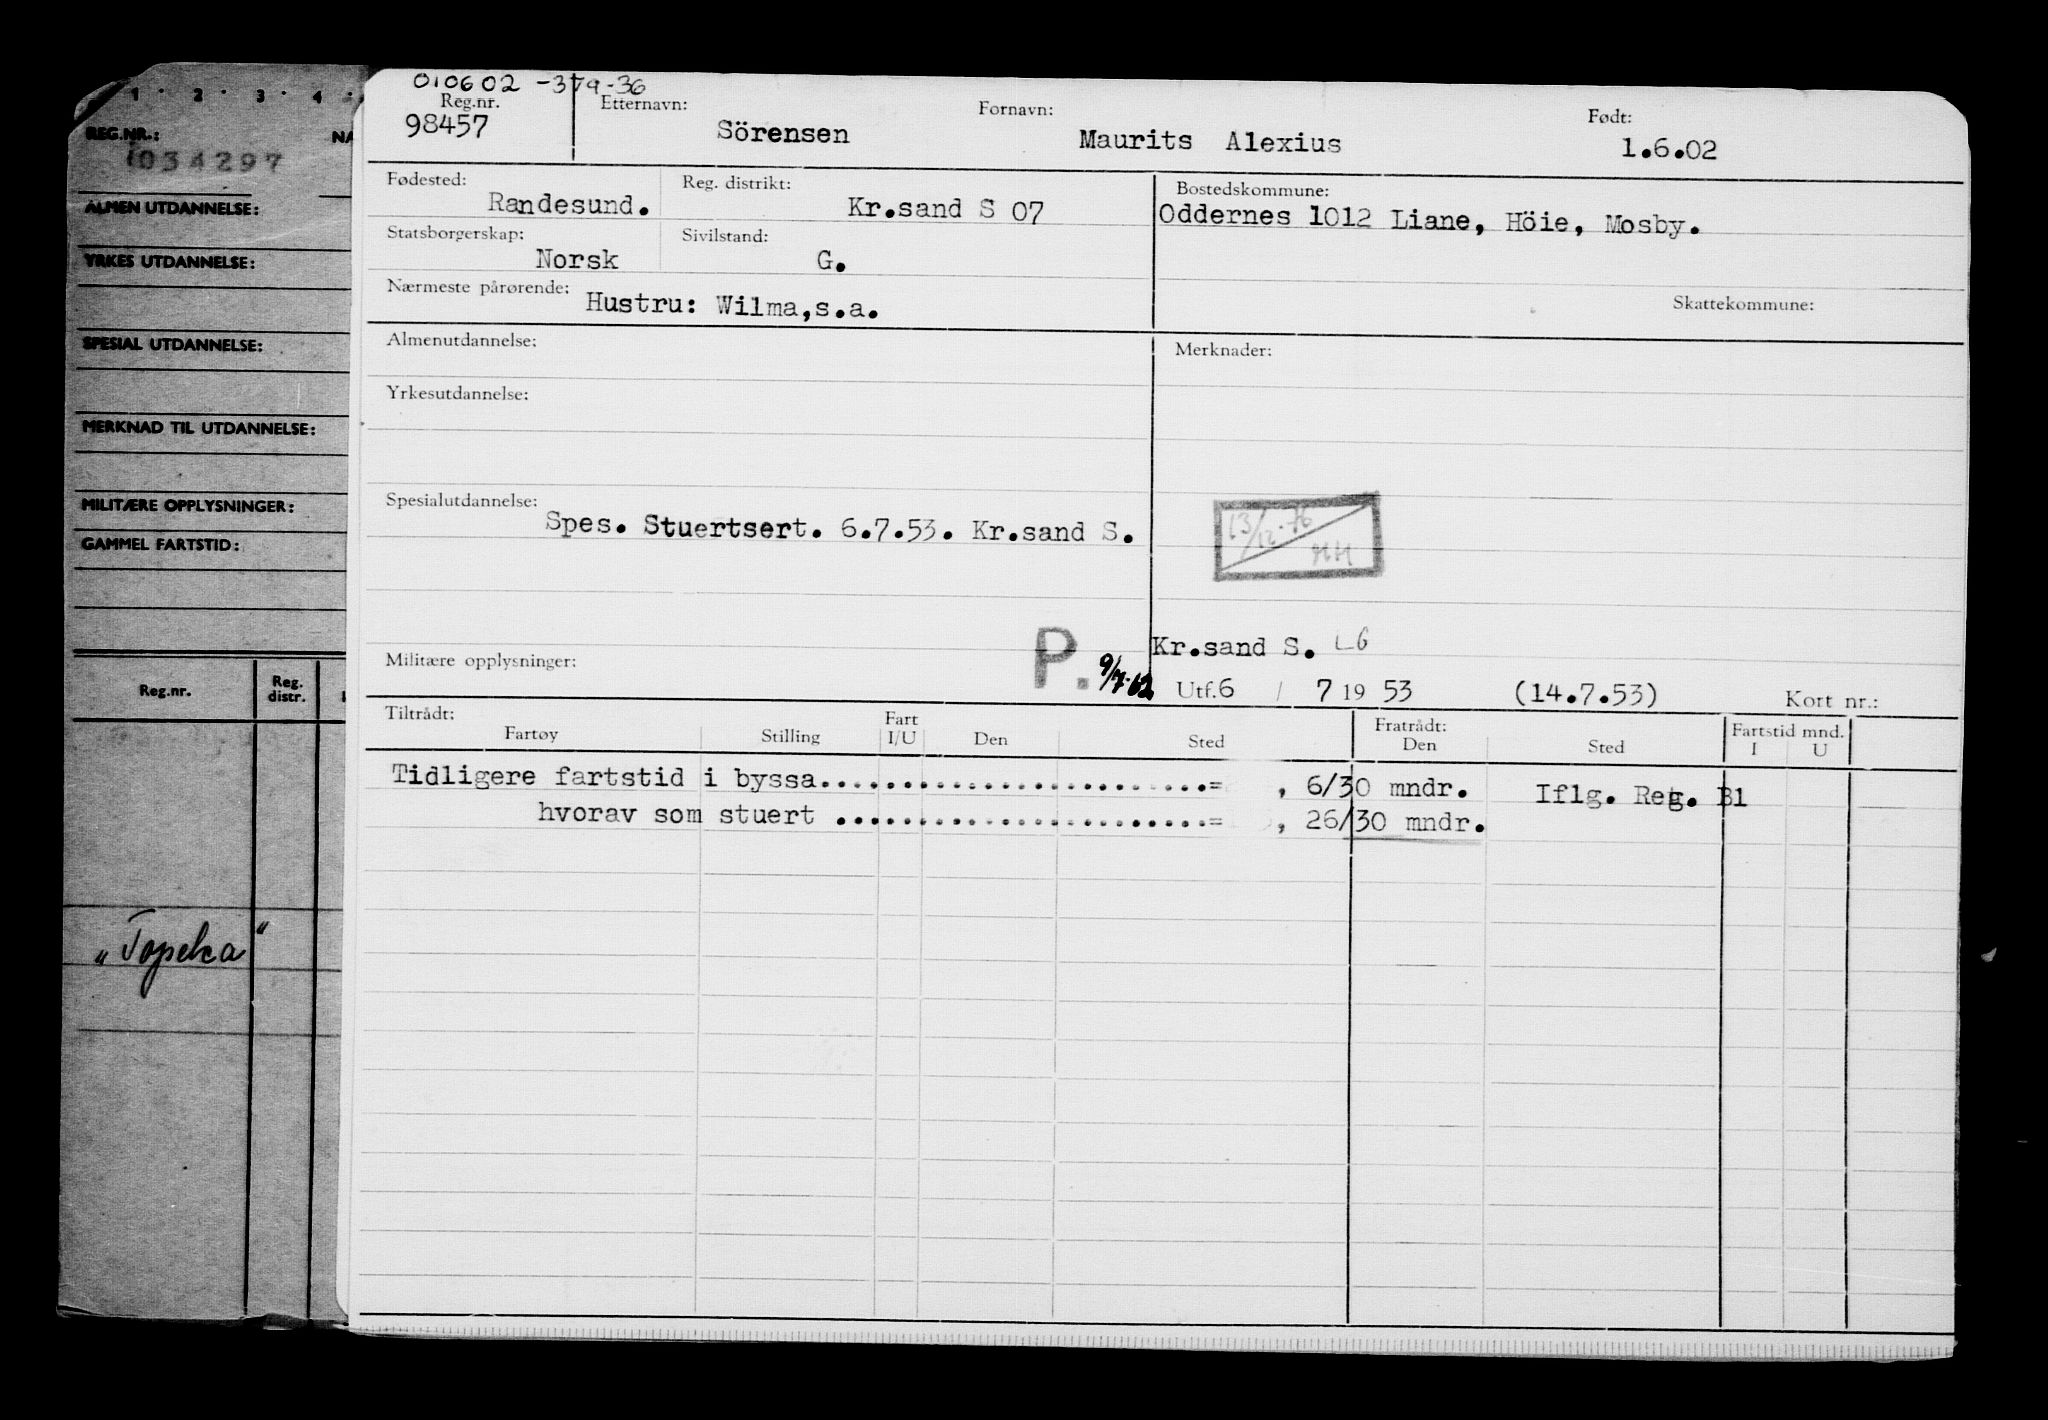 1 · 2 · 3 · 4
REG.NR.:
034297
ALMEN UTDANNELSE:
YRKES UTDANNELSE:
SPESIAL UTDANNELSE:
MERKNAD TIL UTDANNELSE:
MILITÆRE OPPLYSNINGER:
GAMMEL FARTSTID:
Reg.nr. Reg. distr.
„Topeka"
010602 -379-36
Reg.nr. Etternavn: Fornavn: Født:
98457 Sörensen Maurits Alexius 1.6.02
Fødested: Reg. distrikt: Bostedskommune:
Randesund. Kr.sand S 07 Oddernes 1012 Liane, Höie, Mosby.
Statsborgerskap: Sivilstand:
Norsk G.
Nærmeste pårørende: Skattekommune:
Hustru: Wilma,s.a.
Almenutdannelse: Merknader:
Yrkesutdannelse:
Spesialutdannelse:
Spes. Stuertsert. 6.7.53. Kr.sand S.
13/12-76
HH
P. 9/7-62
Kr.sand S. LG
Militære opplysninger:
Utf.6 / 7 19 53 (14.7.53) Kort nr.:
Tiltrådt: Fart Fratrådt: Fartstid mnd.
Fartøy Stilling I/U Den Sted Den Sted I U
Tidligere fartstid i byssa........................= , 6/30 mndr. Iflg. Reg. Bl
hvorav som stuert .......................= , 26/30 mndr.